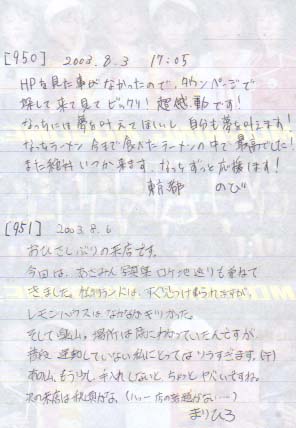 [950] 2003.8.3 17:05
HPを見た事がなかったので、タウンページで
探して来て見てビックリ！超感動です！
なっちには夢を叶えてほしいし自分も夢を叶えます！
なっちラーメン今まで食べたラーメンの中で最高でした！
また絶対いつか来ます。なっちずっと応援します！
東京都 のび
[951] 2003.8.6
おひさしぶりの来店です。
今回は、あさみん写真集ロケ地巡りも兼ねて
きました。ランドは、すぐ見つけられますが、
レモンハウスはなかなかキツかった。
そして里山。場所は既にわかっていたんですが
普段、運動していない私にとってはつらすぎます。(汗)
もう少し手入れしないと、ちょっとヤバいですね。
次の来店は秋頃かな。
まりひろ